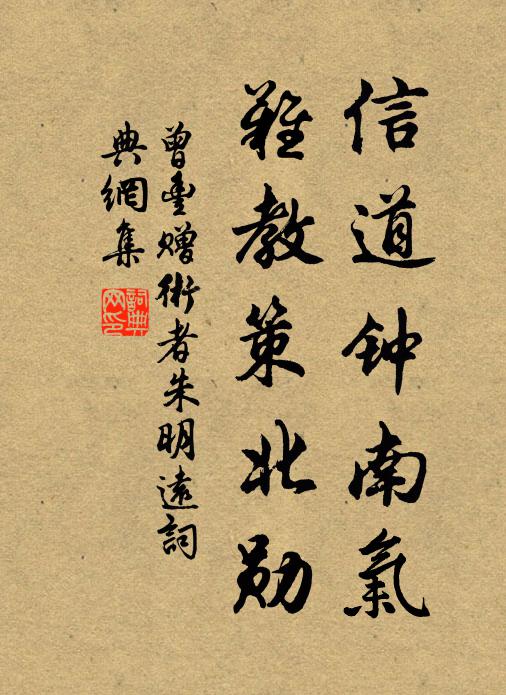 信道钟南氣
難教策北勋
曾豐赠術者朱明遠詞
典網集
詞典网印